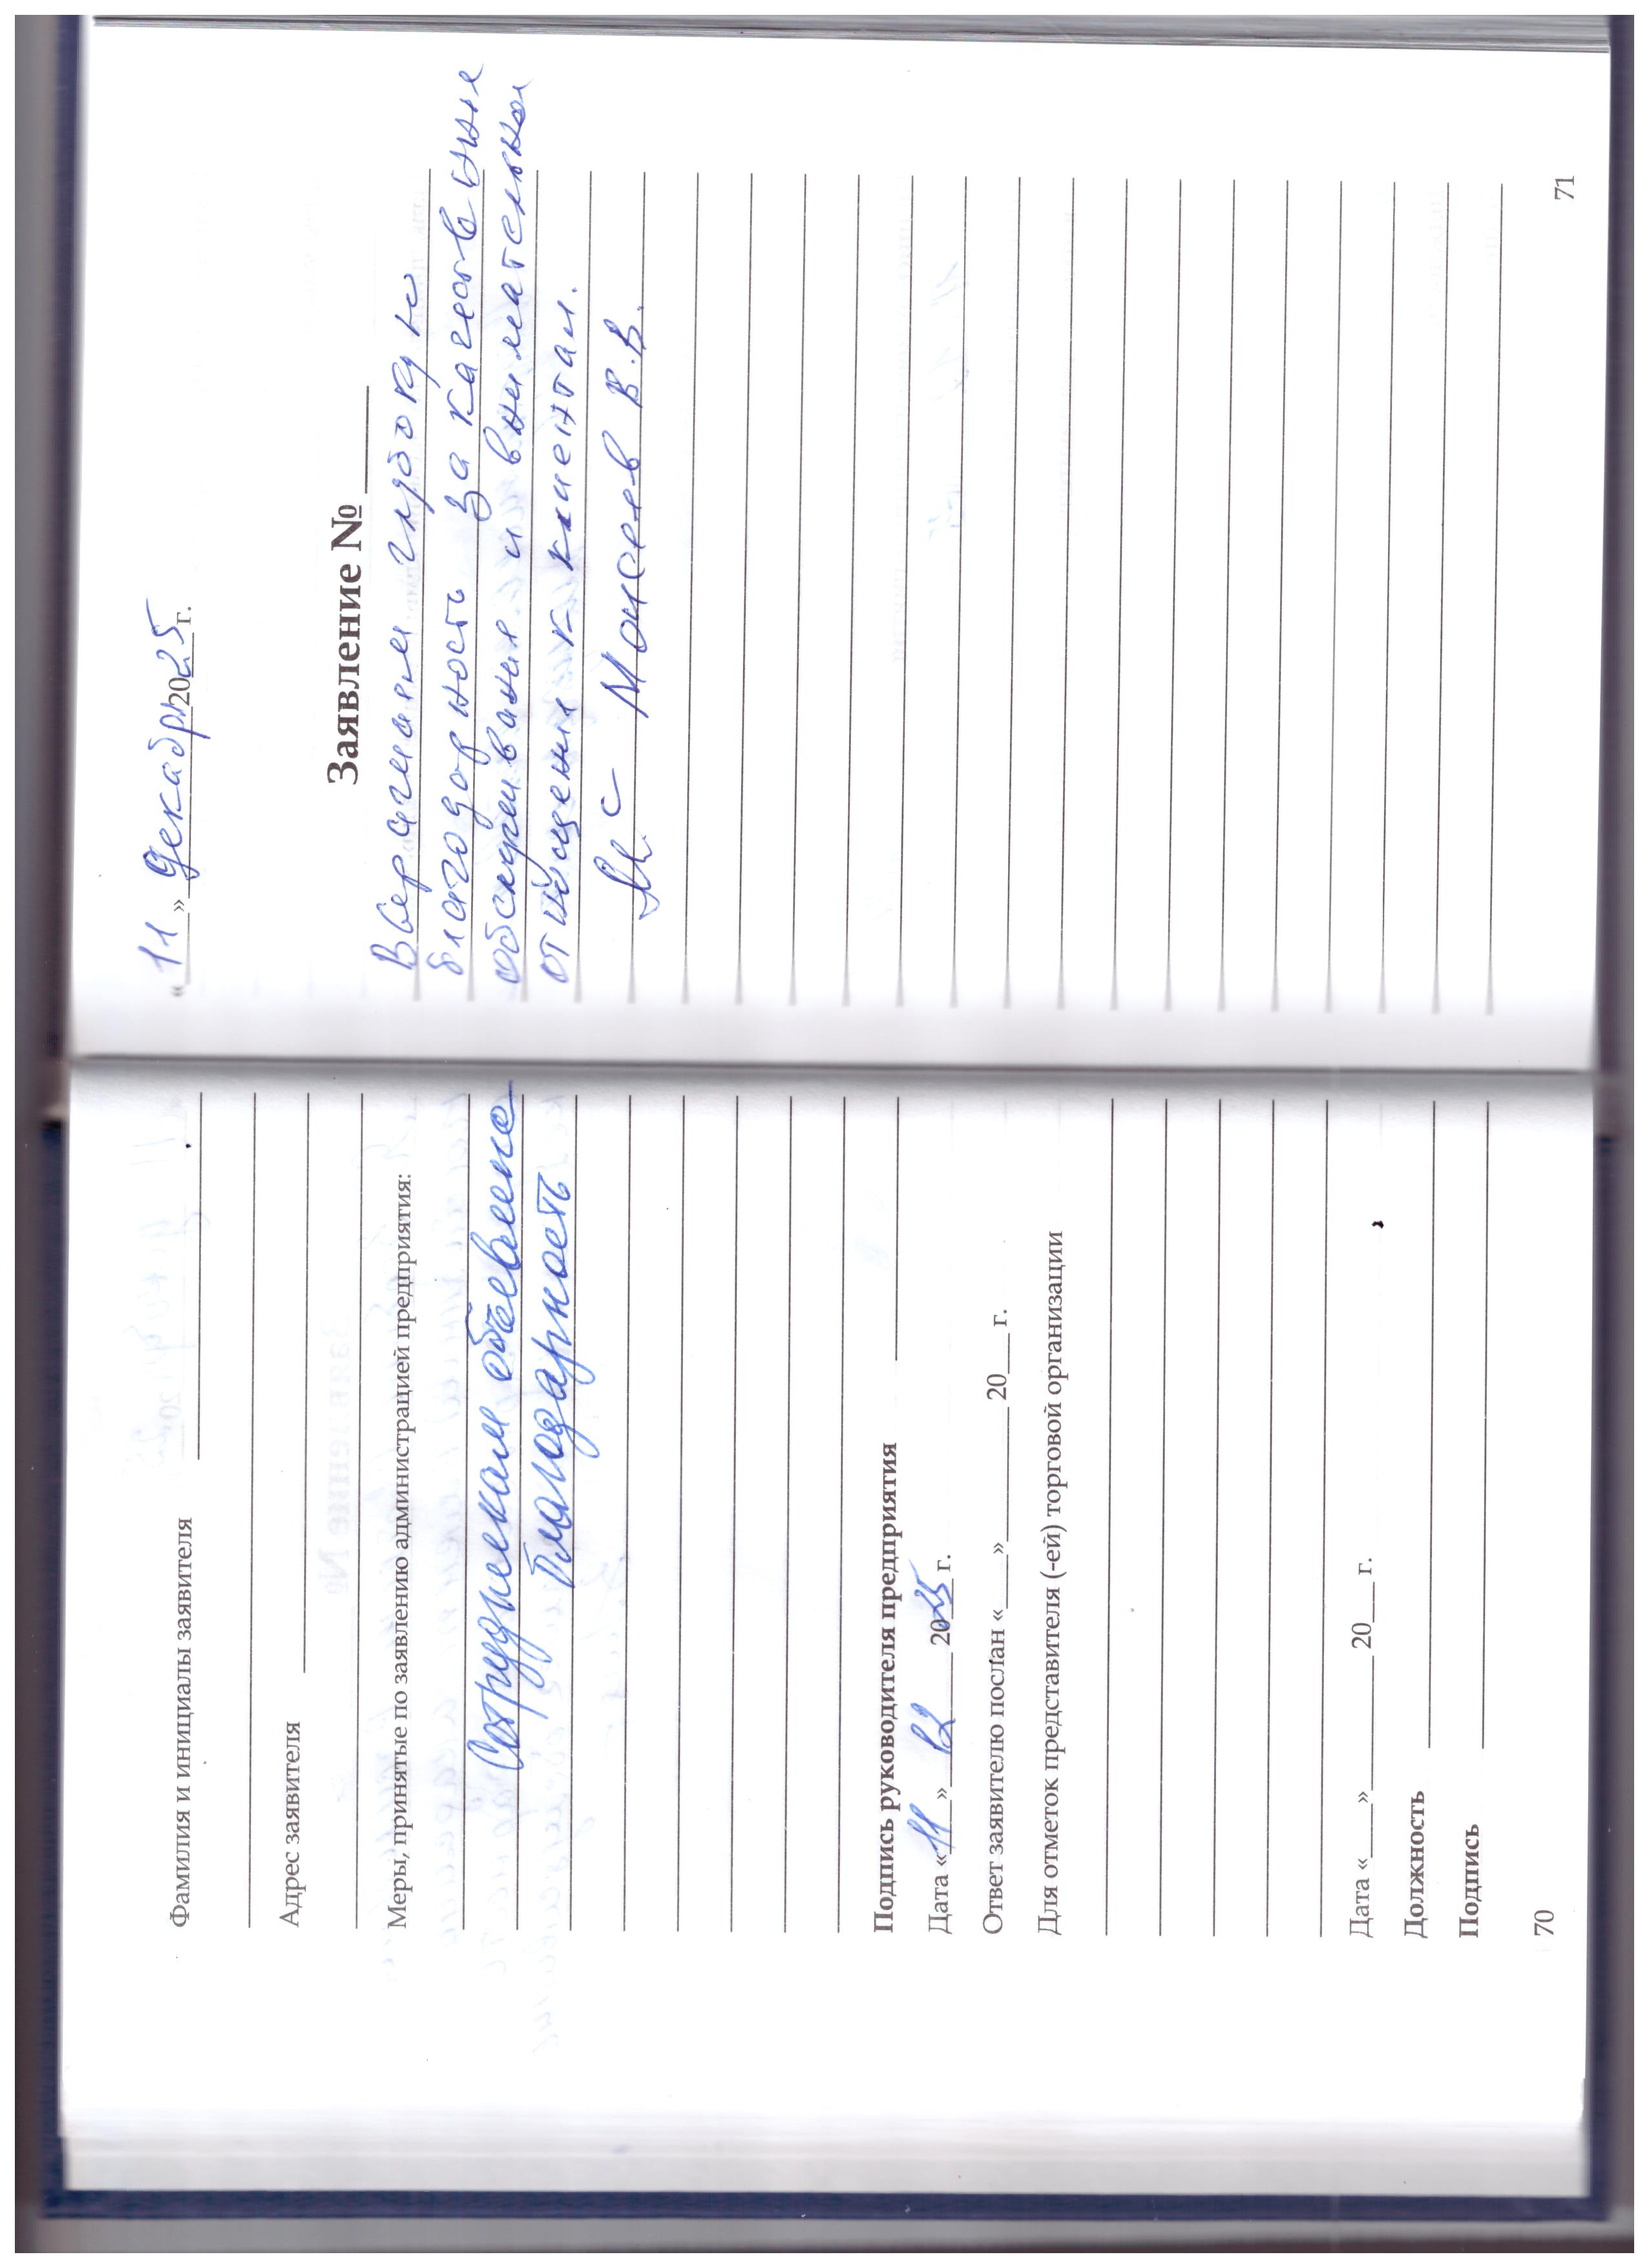 Фамилия и инициалы заявителя
Адрес заявителя
Меры, принятые по заявлению администрацией предприятия:
Сотрудникам объявлена
благодарность
Подпись руководителя предприятия
Дата «11» 12 2025 г.
Ответ заявителю послан «___» ______ 20___ г.
Для отметок представителя (-ей) торговой организации
Дата «___» ______ 20___ г.
Должность
Подпись
70
«11» декабрь 2025 г.
Заявление №
глубокую
благодарность за качественные
обслуживания и внимательная
отношения к клиентам.
Моисеев В.В.
71